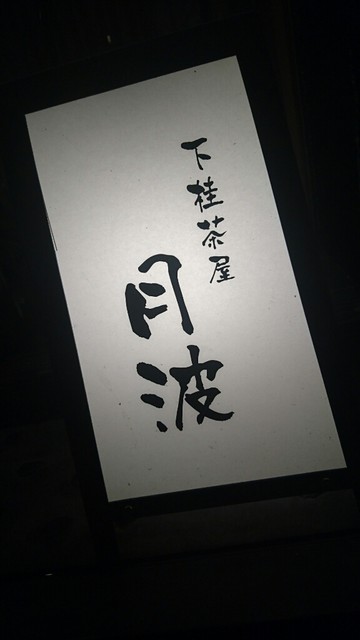 下桂茶屋
月波